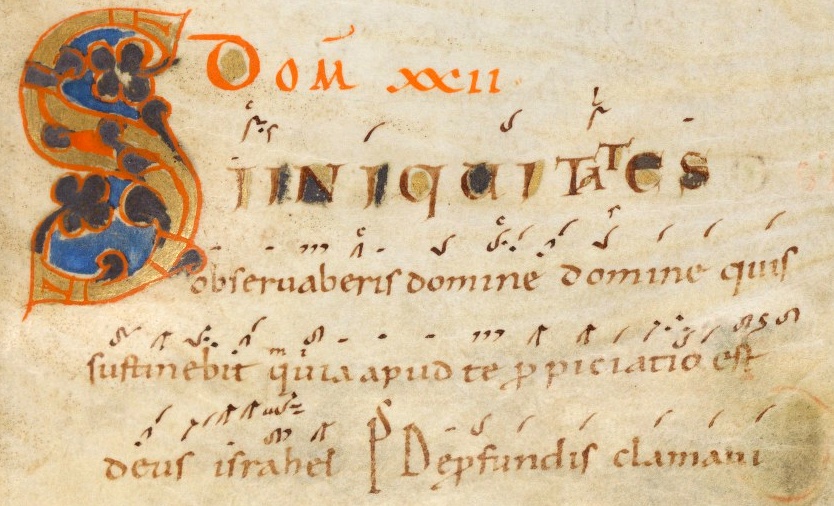 Dom̄ XXII
SI INIQUITATES
observaberis domine domine quis
sustinebit quia apud te ꝓpiciatio est
deus israhel P Deꝓfundis clamavi